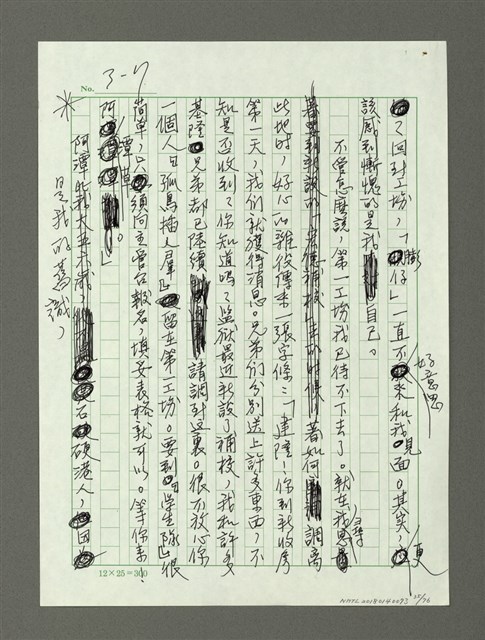 No. 3-7
了回到工場，「膨仔」一直不好意思來和我見面。其實，更
該感到慚愧的是我自己。
不管怎麼說，第一工場我已待不下去了。就在我思尋
著如何調离
此地時，好心的雜役傳來一張字條：「建隆！你到新收房
第一天，我們就獲得消息。兄弟們分別送上許多東西，不
知是否收到？你知道嗎？監獄最近新設了補校，我和許多
基隆兄弟都已陸續請調到這裏。很不放心你
一個人『孤鳥插人羣』留在第一工場。要到『學生隊』很
簡單，只須向主管台報名，填妥表格就可以。等你來！
阿潭草」。
阿潭比我大五六歲，石硬港人，因
＊是我的舊識，
12×25=300
NMTL20180140093 25/76